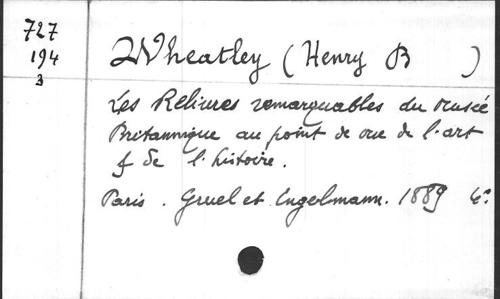 727
194
3
Wheatley (Henry B )
Les Reliures remarquables du Musée
Britannique au point de vue de l'art
& de l'histoire.
Paris. Gruel et Engelmann. 1889 4°